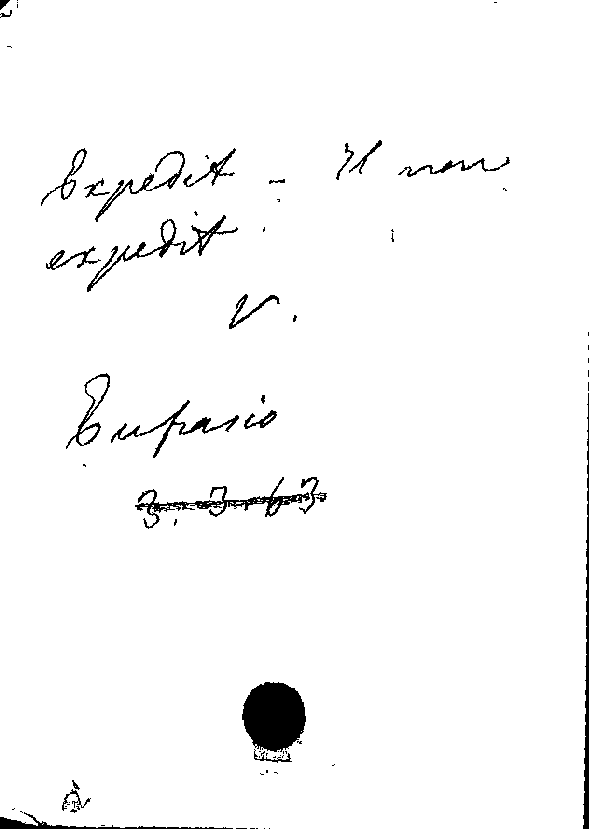 Expedit - Il non
expedit.
V.
Eufrasio
3. 3. 63